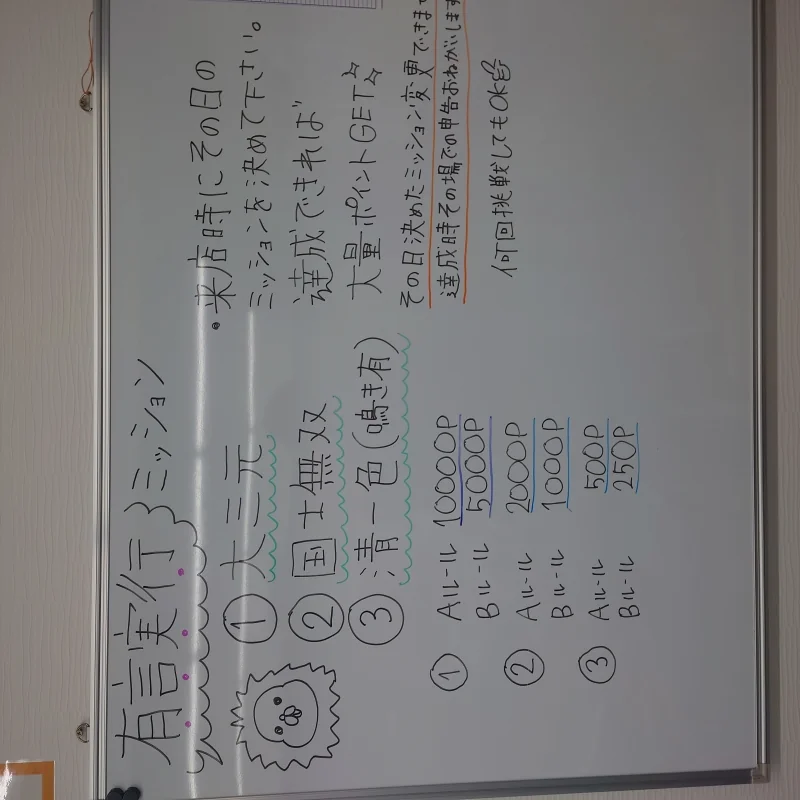 有言実行ミッション
① 大三元
② 国士無双
③ 清一色(鳴き有)
・来店時にその日の
ミッションを決めて下さい。
達成できれば
大量ポイントGET☆☆
その日決めたミッション変更できませ
達成時その場での申告おねがいします
何回挑戦してもOK
① Aルール 10000P
Bルール 5000P
② Aルール 2000P
Bルール 1000P
③ Aルール 500P
Bルール 250P